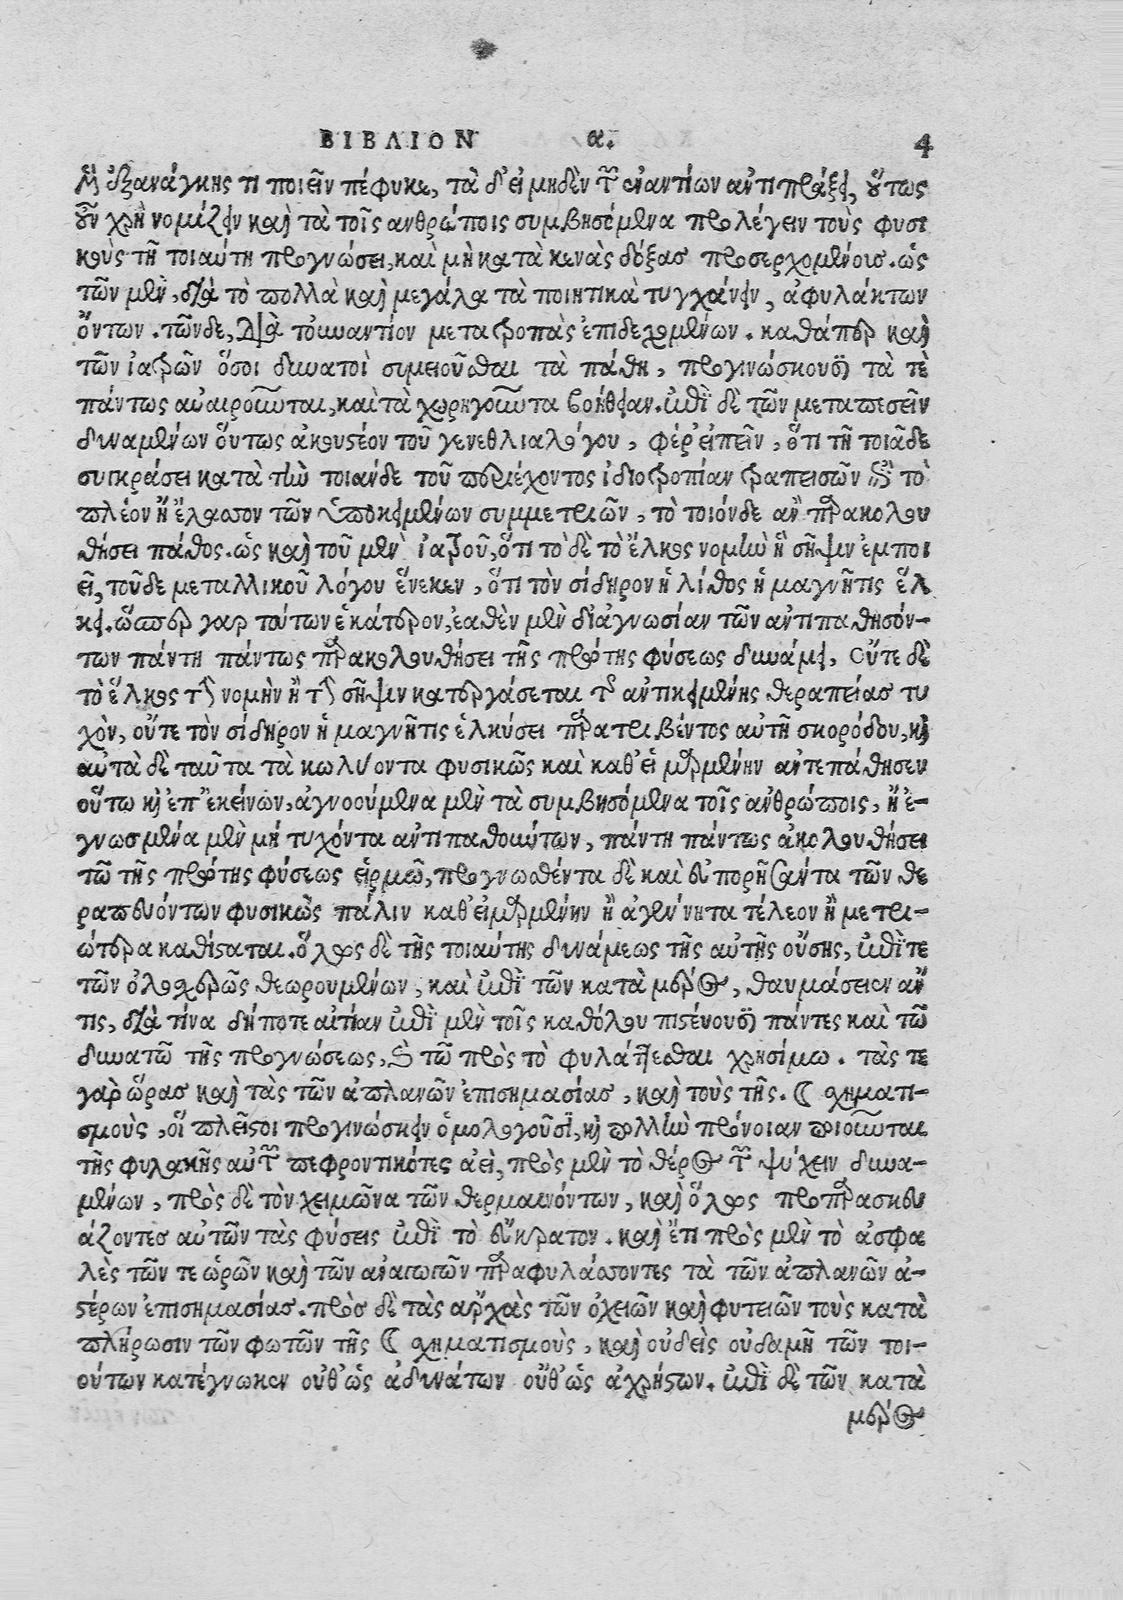 ΒΙΒΛΙΟΝ α. 4
μὲν ἐξανάγκης τι ποιεῖν πέφυκε, τὰ δ' εἰ μηδὲν τῶν ἐναντίων ἀντιπράξει, οὕτως
οὖν χρὴ νομίζειν καὶ τὰ τοῖς ανθρώποις συμβησόμενα προλέγειν τοὺς φυσι
κοὺς τῇ τοιαύτῃ προγνώσει, καὶ μὴ κατὰ κενὰς δόξας προσερχομένοις. ὡς
τῶν μὲν, διὰ τὸ πολλὰ καὶ μεγάλα τὰ ποιητικὰ τυγχάνειν, ἀφυλάκτων
ὄντων. τῶνδε, διὰ τοὐναντίον μετατροπὰς ἐπιδεχομένων. καθάπερ καὶ
τῶν ἰατρῶν ὅσοι δυνατοὶ συμειοῦσθαι τὰ πάθη, προγινώσκουσι τὰ τὲ
πάντως ἀναιροῦνται, καὶ τὰ χωρηγοῦντα βοήθειαν. ἐπὶ δὲ τῶν μεταπεσεῖν
δυναμένων οὕτως ἀκουστέον τοῦ γενεθλιαλόγου, φέρ' εἰπεῖν, ὅτι τῇ τοιᾶδε
συγκράσει κατὰ τὴν τοιάνδε τοῦ περιέχοντος ἰδιοτροπίαν τραπεισῶν ἐπὶ τὸ
πλέον ἢ ἔλασσον τῶν ὑποκειμένων συμμετριῶν, τὸ τοιόνδε ἂν παρακολου
θήσει πάθος. ὡς καὶ τοῦ μὲν ἰατροῦ, ὅτι τὸ δὲ τὸ ἕλκος νομὴν ἢ σῆψιν ἐμποι
εῖ, τοῦδε μεταλλικοῦ λόγου ἕνεκεν, ὅτι τὸν σίδηρον ἡ λίθος ἡ μαγνῆτις ἕλ
κει. ὥσπερ γαρ τούτων ἑκάτερον, ἐαθὲν μὲν δι' ἀγνωσίαν τῶν ἀντιπαθησόν-
των πάντη πάντως παρακολουθήσει τῆς πρώτης φύσεως δυνάμει, οὔτε δὲ
τὸ ἕλκος τὴν νομὴν ἢ τὴν σῆψιν κατεργάσεται τῆς ἀντικειμένης θεραπείας τυ
χὸν, οὔτε τὸν σίδηρον ἡ μαγνῆτις ἑλκύσει παρατριβέντος αὐτῇ σκορόδου, καὶ
αὐτὰ δὲ ταῦτα τὰ κωλύοντα φυσικῶς καὶ καθ' εἱμαρμένην ἀντεπάθησεν
οὕτω καὶ ἐπ' ἐκείνων, ἀγνοούμενα μὲν τὰ συμβησόμενα τοῖς ἀνθρώποις, ἢ ἐ-
γνωσμένα μὲν μή τυχόντα ἀντιπαθούντων, πάντη πάντως ἀκολουθήσει
τῷ τῆς πρώτης φύσεως εἱρμῷ, προγνωσθέντα δὲ καὶ εὐπορήσαντα τῶν θε
ραπευόντων φυσικῶς πάλιν καθ' εἱμαρμένην ἢ ἀγένητα τέλεον ἢ μετρι-
ώτερα καθίσταται. ὅλως δὲ τῆς τοιαύτης δυνάμεως τῆς αὐτῆς οὔσης, ἐπί τε
τῶν ὁλοχερῶς θεωρουμένων, καὶ ἐπὶ τῶν κατὰ μέρος, θαυμάσειεν ἄν
τις, διὰ τίνα δήποτε αἰτίαν ἐπὶ μὲν τοῖς καθόλου πιστέυουσι πάντες καὶ τῷ
δυνατῷ τῆς προγνώσεως, καὶ τῷ πρὸς τὸ φυλάττεσθαι χρησίμω. τὰς τε
γαρ ὥρας καὶ τὰς τῶν ἀπλανῶν ἐπισημασίας, καὶ τοὺς τῆς. ☾ σχηματι-
σμοὺς, οἱ πλεῖστοι προγινώσκειν ὁμολογοῦσι, καὶ πολλὴν πρόνοιαν ποιοῦνται
τῆς φυλακῆς αὐτῶν πεφροντικότες ἀεὶ, πρὸς μὲν τὸ θέρος τῶν ψύχειν δυνα-
μένων, πρὸς δὲ τὸν χειμῶνα τῶν θερμαινόντων, καὶ ὅλως προπαρασκευ
άζοντες αὐτῶν τὰς φύσεις ἐπὶ τὸ εὔκρατον. καὶ ἔτι πρὸς μὲν τὸ ἀσφα
λὲς τῶν τε ὡρῶν καὶ τῶν ἀναγωγῶν παραφυλάσσοντες τὰ τῶν ἀπλανῶν ἀ-
στέρων ἐπισημασίας. πρὸς δὲ τὰς ἀρχὰς τῶν ὀχειῶν καὶ φυτειῶν τοὺς κατὰ
πλήρωσιν τῶν φωτῶν τῆς ☾ σχηματισμοὺς, καὶ οὐδεὶς οὐδαμῆ τῶν τοι-
ούτων κατέγνωκεν οὐθ' ὡς ἀδυνάτων οὔθ' ὡς ἀχρήστων. ἐπὶ δὲ τῶν κατὰ
μέρος